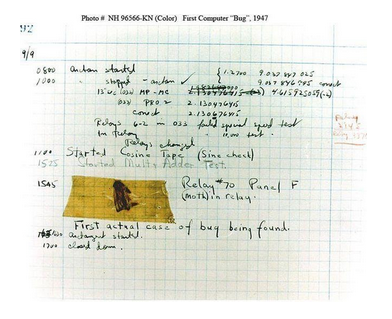 Photo # NH 96566-KN (Color) First Computer "Bug", 1947
92
9/9
0800 antan started
1000 " stopped - antan ✓ { 1.2700 9.037 847 025
9.037 846 995 correct
13" UC (032) MP - MC 4.615925059(-2)
(033) PRO 2 2.130476415
correct 2.130676415
Relays 6-2 in 033 failed special speed test
in relay " test.
Relays changed
1100 Started Cosine Tape (Sine check)
1525 Started Multi Adder Test.
1545 Relay #70 Panel F
(moth) in relay.
First actual case of bug being found.
antangent started.
1700 closed down.